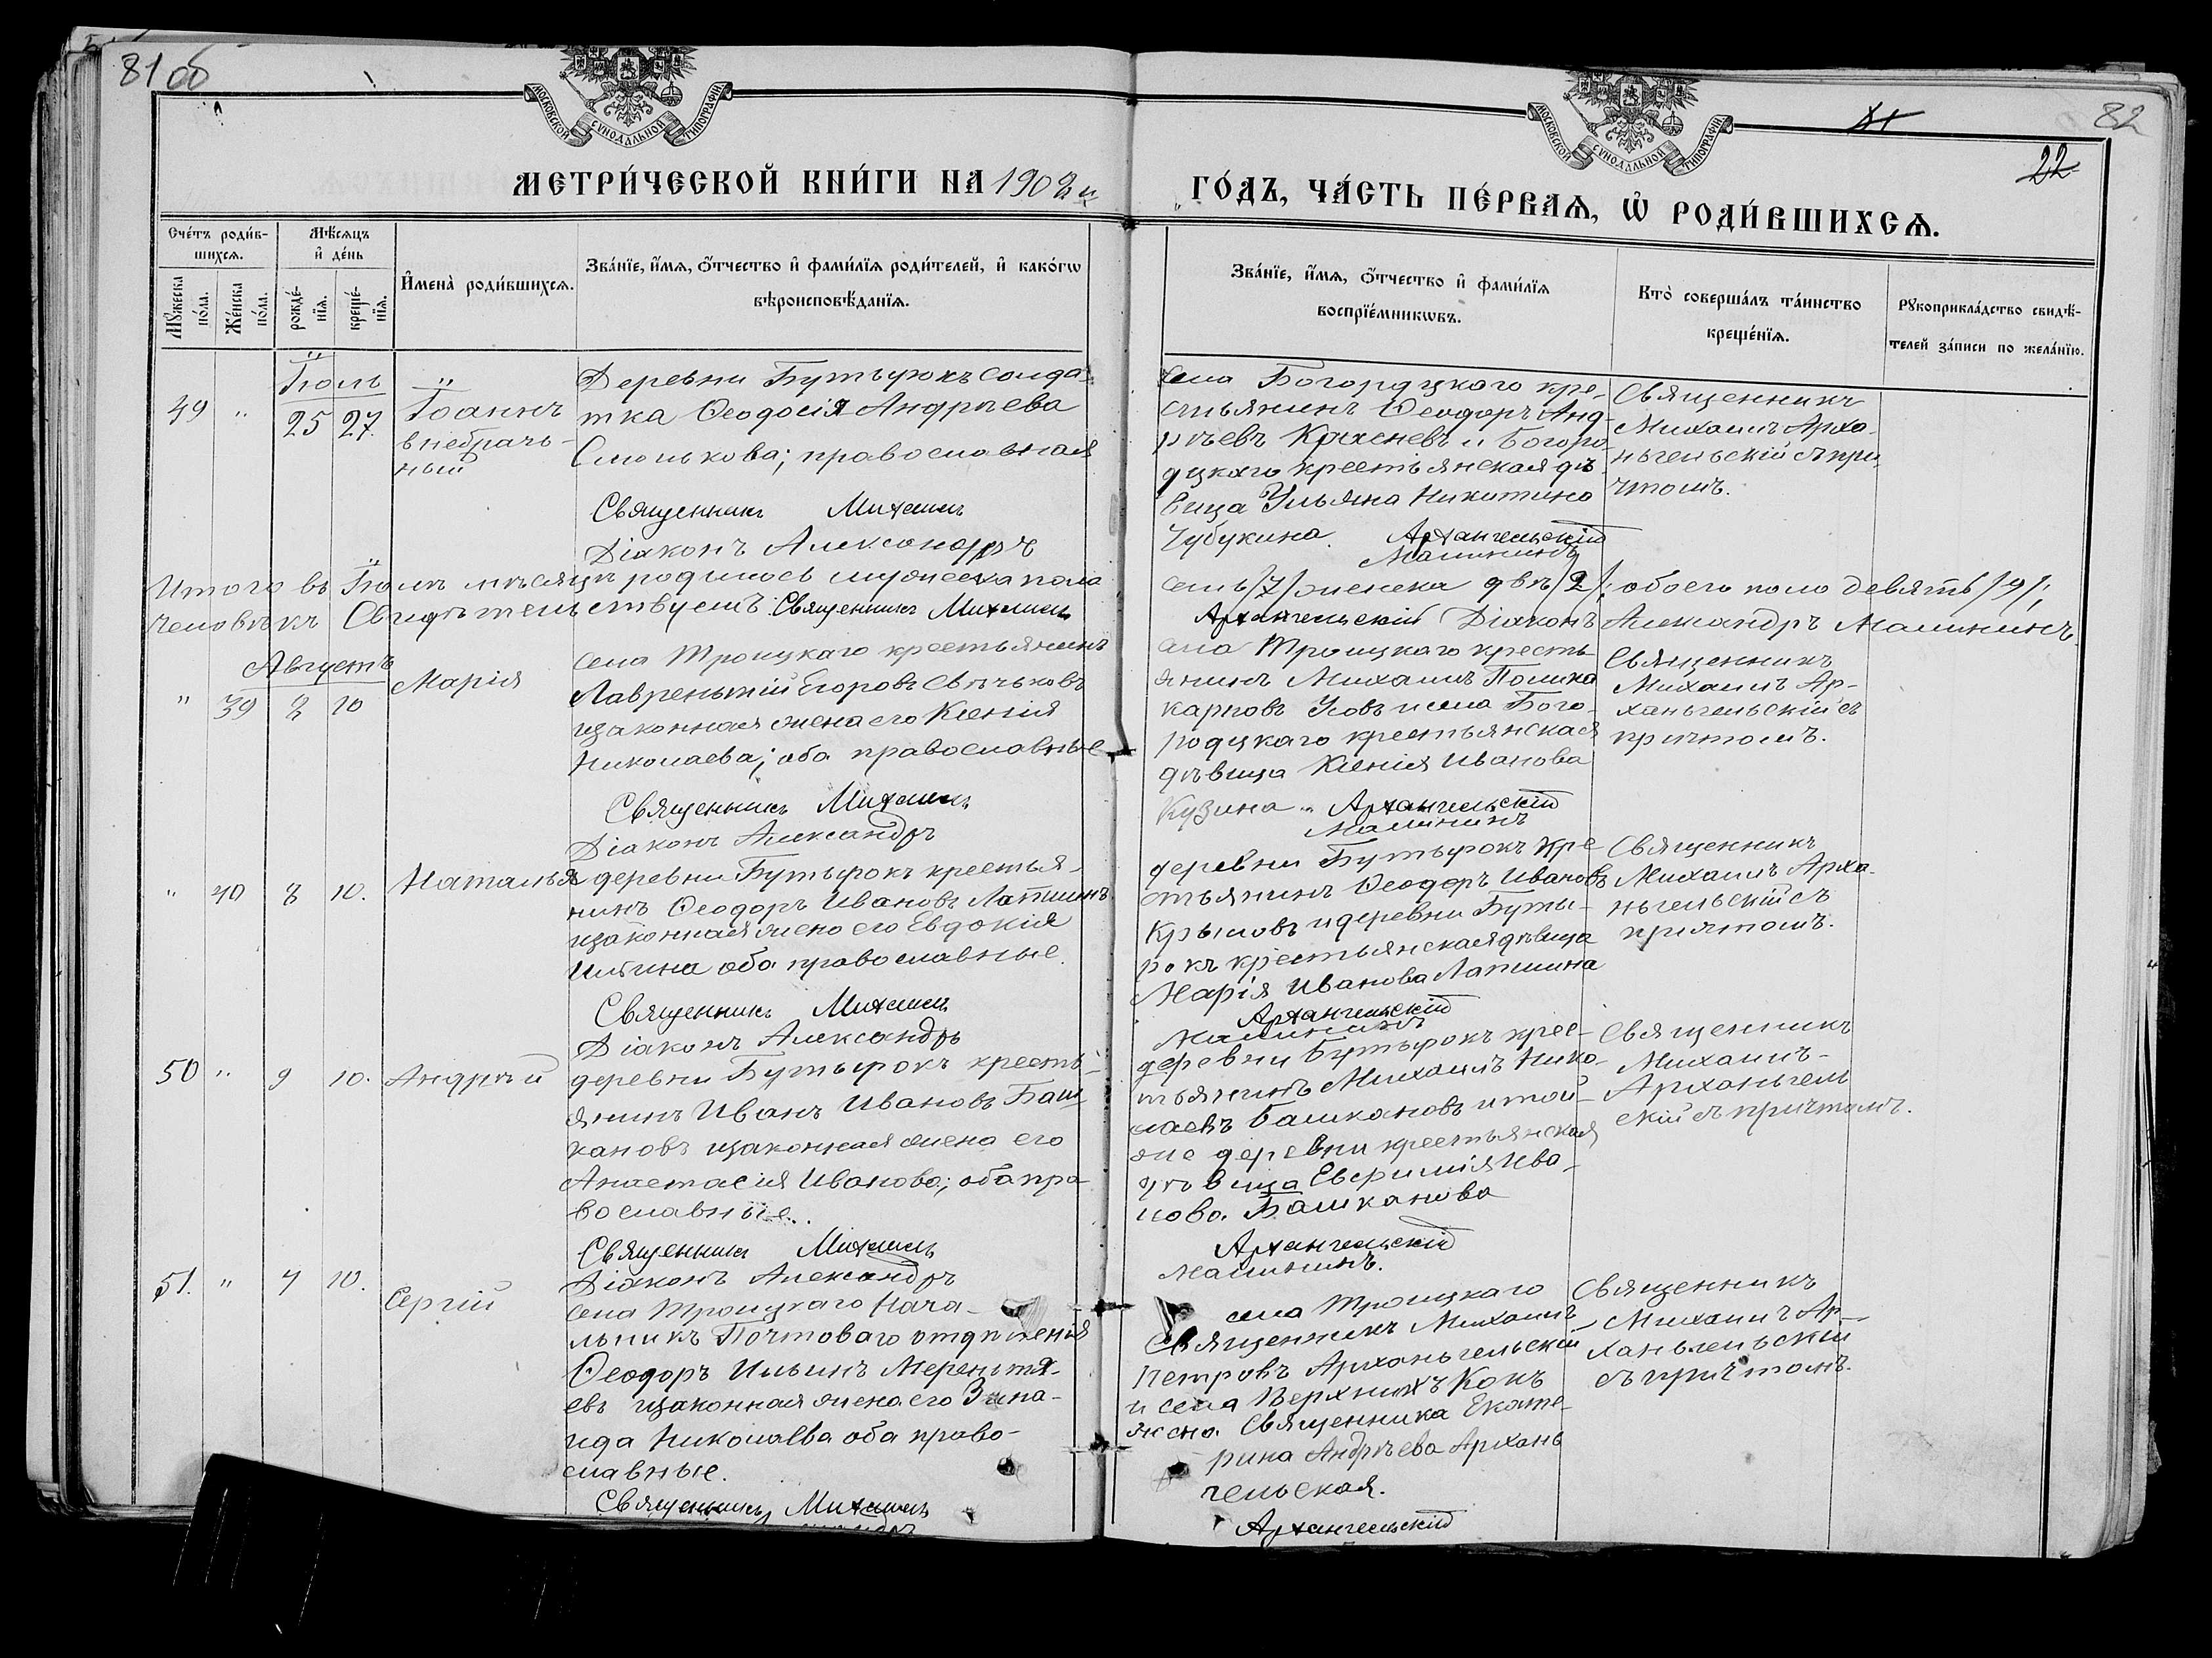 81 об
82
22
МОСКОВСКОЙ СѴНОДАЛЬНОЙ ТИПОГРАФІИ
МОСКОВСКОЙ СѴНОДАЛЬНОЙ ТИПОГРАФІИ
МЕТРИ́ЧЕСКОЙ КНИ́ГИ НА 1908 й
ГО́ДЪ, ЧА́СТЬ ПЕ́РВАѦ, Ѡ҆ РОДИ́ВШИХСѦ.
Сче́тъ роди́в-
шихсѧ.
Мꙋ́жеска по́ла.
Же́нска по́ла.
Мѣ́сѧцъ
и҆ де́нь
рожде́-
нїѧ.
креще́-
нїѧ.
И҆мена̀ роди́вшихсѧ.
Зва́нїе, и҆́мѧ, ѻ҆́тчество и҆ фами́лїѧ роди́телей, и҆ како́гѡ
вѣроисповѣ́данїѧ.
Зва́нїе, и҆́мѧ, ѻ҆́тчество и҆ фами́лїѧ
воспрїе́мникѡвъ.
Кто̀ соверша́лъ та́инство
креще́нїѧ.
Рꙋкоприкла́дство свидѣ́-
телей за́писи по жела́нїю.
Іюль
49 " 25 27. Іоаннъ
внебрачь-
ный
Деревни Бутырокъ солда-
тка Ѳеодосія Андрѣева
Смолькова; православная
Священникъ Михаилъ
Діаконъ Александръ
села Богородцкаго кре-
стьянинъ Ѳеодоръ Анд-
рѣевъ Красневъ и Богоро
дцкаго крестьянская дѣ
вица Ульяна Никитина
Чубукина. Архангельскій
Малининъ
Священникъ
Михаилъ Арха-
ньгельскій съ при
чтомъ.
Итого въ Іюлѣ мѣсяцѣ родилось мужеска пола
семь /7/ женска двѣ /2/; обоего пола девять /9/;
человѣкъ Свидѣтельствуемъ: Священникъ Михаилъ
Архангельскій Діаконъ Александръ Малининъ
Августъ
" 39 8 10 Марія
села Троицкаго крестьянинъ
Лаврентій Егоровъ Свѣчьковъ
изаконная жена его Ксенія
Николаева; оба православные
Священникъ Михаилъ
Діаконъ Александръ
села Троицкаго кресть
янинъ Михаилъ Полика
карповъ Усовъ и села Бого-
родцкаго крестьянская
дѣвица Ксенія Иванова
Кузина Архангельскій
Малининъ
Священникъ
Михаилъ Ар-
ханьгельскій съ
причтомъ.
" 40 8 10. Наталья
деревни Бутырокъ крестья-
нинъ Ѳеодоръ Ивановъ Латшинъ
изаконная жена его Евдокія
Ильина оба православные.
Священникъ Михаилъ
Діаконъ Александръ
деревни Бутырокъ кре-
стьянинъ Ѳеодоръ Ивановъ
Крыловъ и деревни Буты-
рокъ крестьянская дѣвица
Марія Иванова Латшина
Архангельскій
Малининъ
Священникъ
Михаилъ Арха-
ньгельскій съ
причтомъ.
50 " 9 10. Андрѣй
деревни Бутырокъ кресть-
янинъ Иванъ Ивановъ Баш-
кановъ изаконная жена его
Анастасія Иванова; оба пра-
вославные.
Священникъ Михаилъ
Діаконъ Александръ
деревни Бутырокъ крес-
тьянинъ Михаилъ Нико-
лаевъ Башкановъ и той-
же деревни крестьянская
дѣвица Евфимія Ива-
нова. Башканова
Архангельскій
Малининъ.
Священникъ
Михаилъ-
Арханьгель
скій съ причтомъ.
51. " 7 10. Сергій
села Троицкаго Нача-
льникъ Почтоваго отдѣленія
Ѳеодоръ Ильинъ Мереньтя-
евъ изаконная жена его Зина-
ида Николаева оба право-
славные.
Священникъ Михаилъ
села Троицкаго
Священникъ Михаилъ
Петровъ Арханьгельскій
и села Верхнихъ Кокъ
жена Священника Екате-
рина Андрѣева Архань
гельская.
Архангельскій
Священникъ
Михаилъ Ар-
ханьгельскій
съ причтомъ.